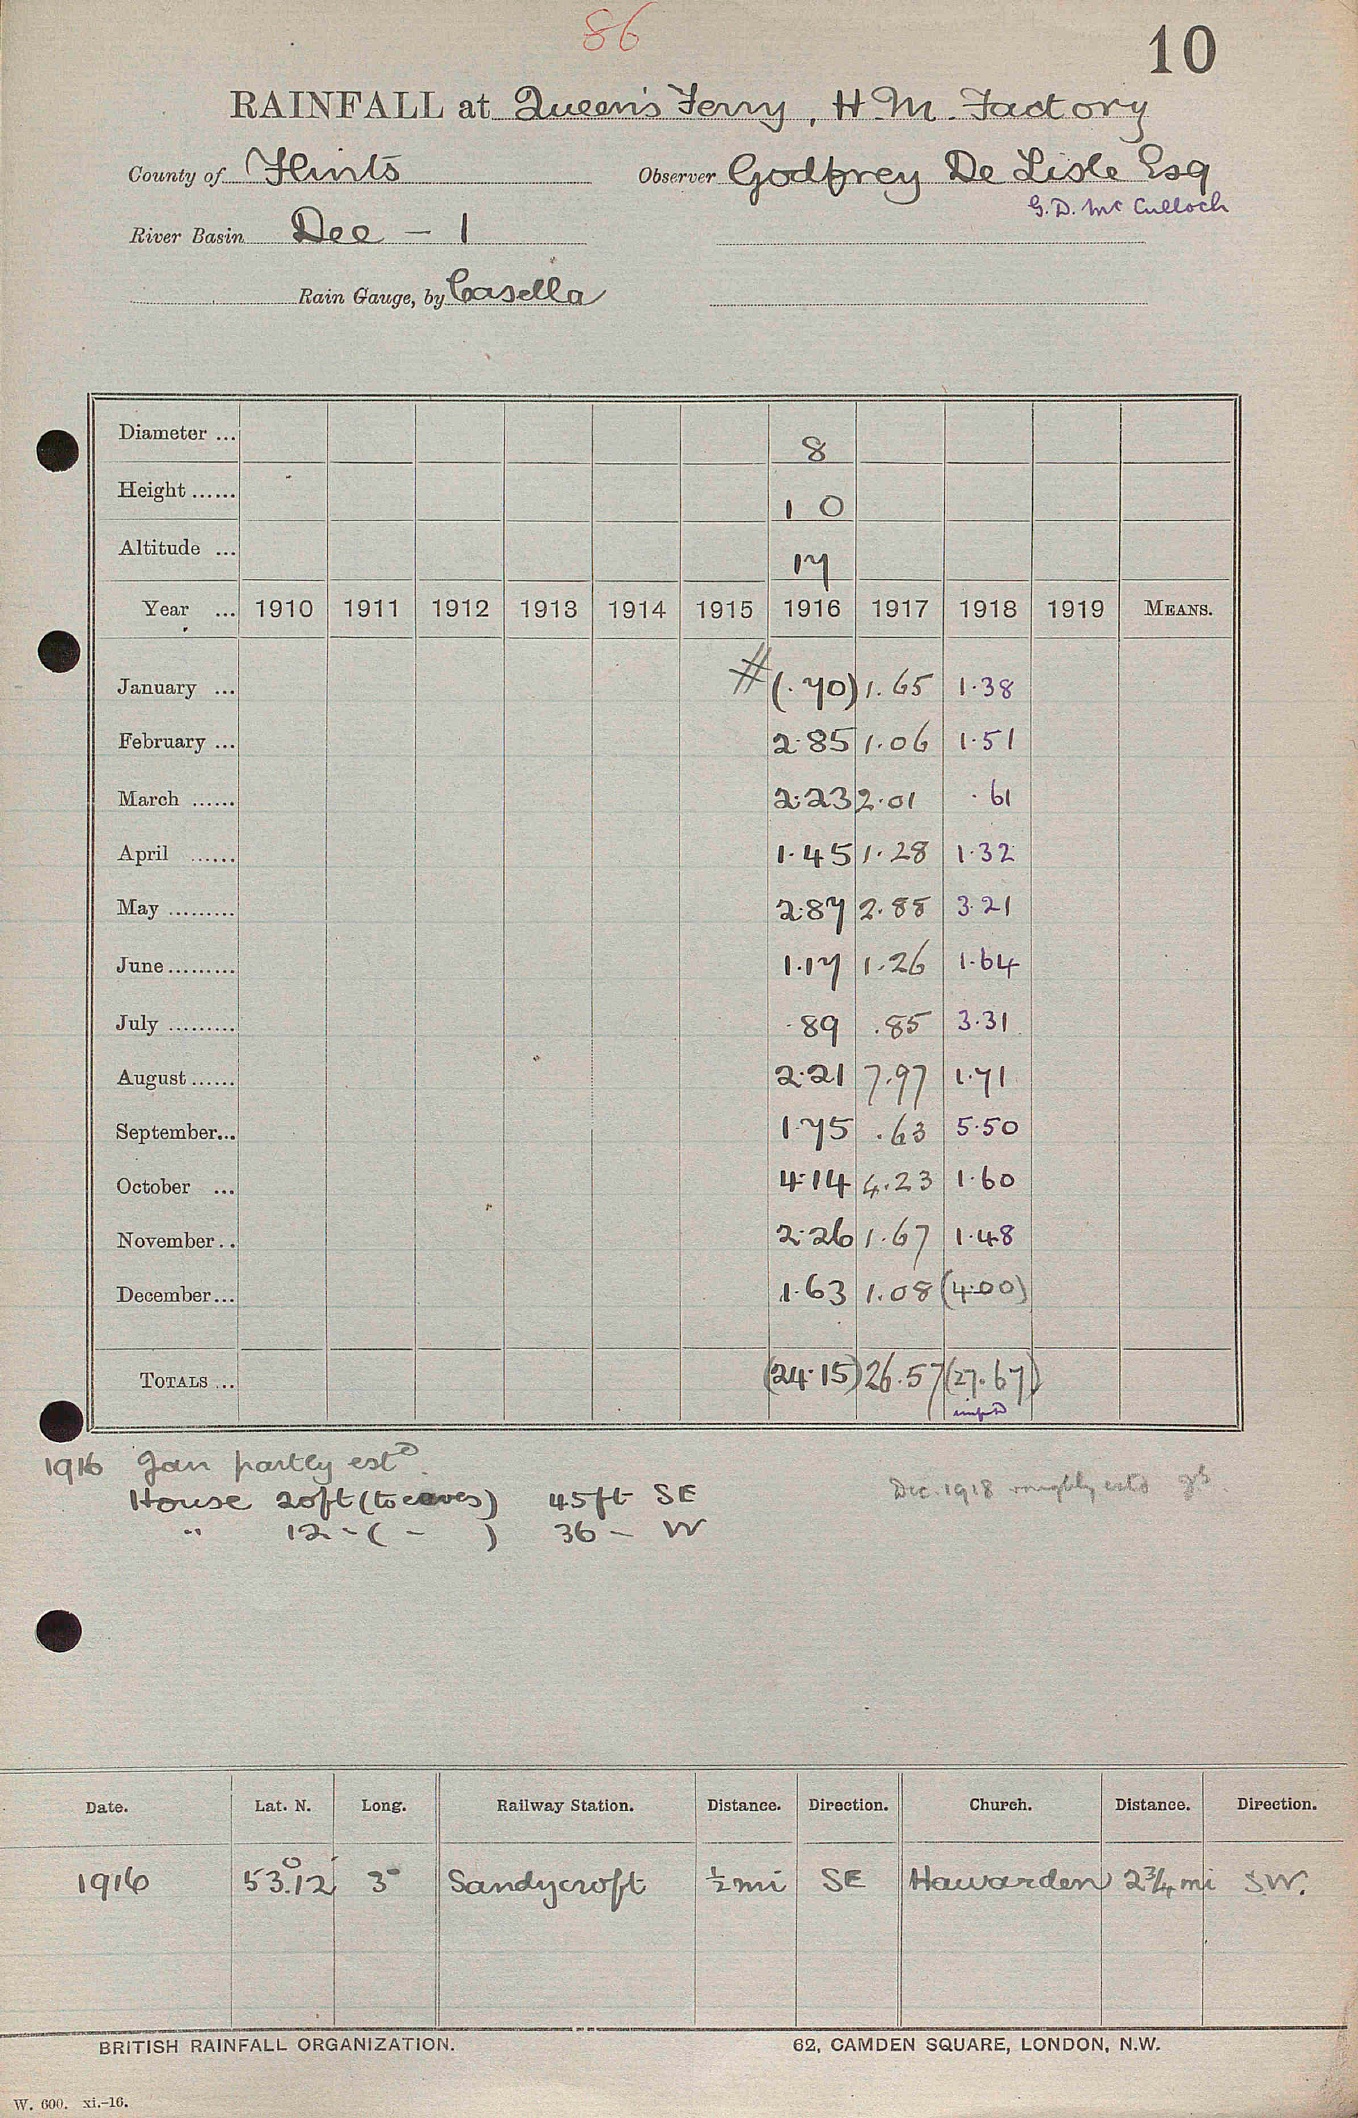 86
10
RAINFALL at Queen's Ferry, H.M. Factory
County of Flints Observer Godfrey De Lisle Esq
G.D. Mc Culloch
River Basin Dee - 1
Rain Gauge, by Casella
Diameter ... 8
Height ...... 1 0
Altitude ... 17
Year ... 1910 1911 1912 1913 1914 1915 1916 1917 1918 1919 MEANS.
January ... # (.70) 1.65 1.38
February ... 2.85 1.06 1.51
March ...... 2.23 2.01 .61
April ...... 1.45 1.28 1.32
May ......... 2.87 2.88 3.21
June ......... 1.17 1.26 1.64
July ......... .89 .85 3.31
August ...... 2.21 7.97 1.71
September... 1.75 .63 5.50
October ... 4.14 4.23 1.60
November .. 2.26 1.67 1.48
December... 1.63 1.08 (4.00)
TOTALS ... (24.15) 26.57 (27.67)
1916 Jan partly estd.
House 20ft (to eaves) 45ft SE
" 12 - ( - ) 36 - W
Dec. 1918 roughly estd
Date. Lat. N. Long. Railway Station. Distance. Direction. Church. Distance. Direction.
1916 53°.12' 3° Sandycroft ½ mi SE Hawarden 2¾ mi S.W.
BRITISH RAINFALL ORGANIZATION. 62, CAMDEN SQUARE, LONDON, N.W.
W. 600. xi.-16.